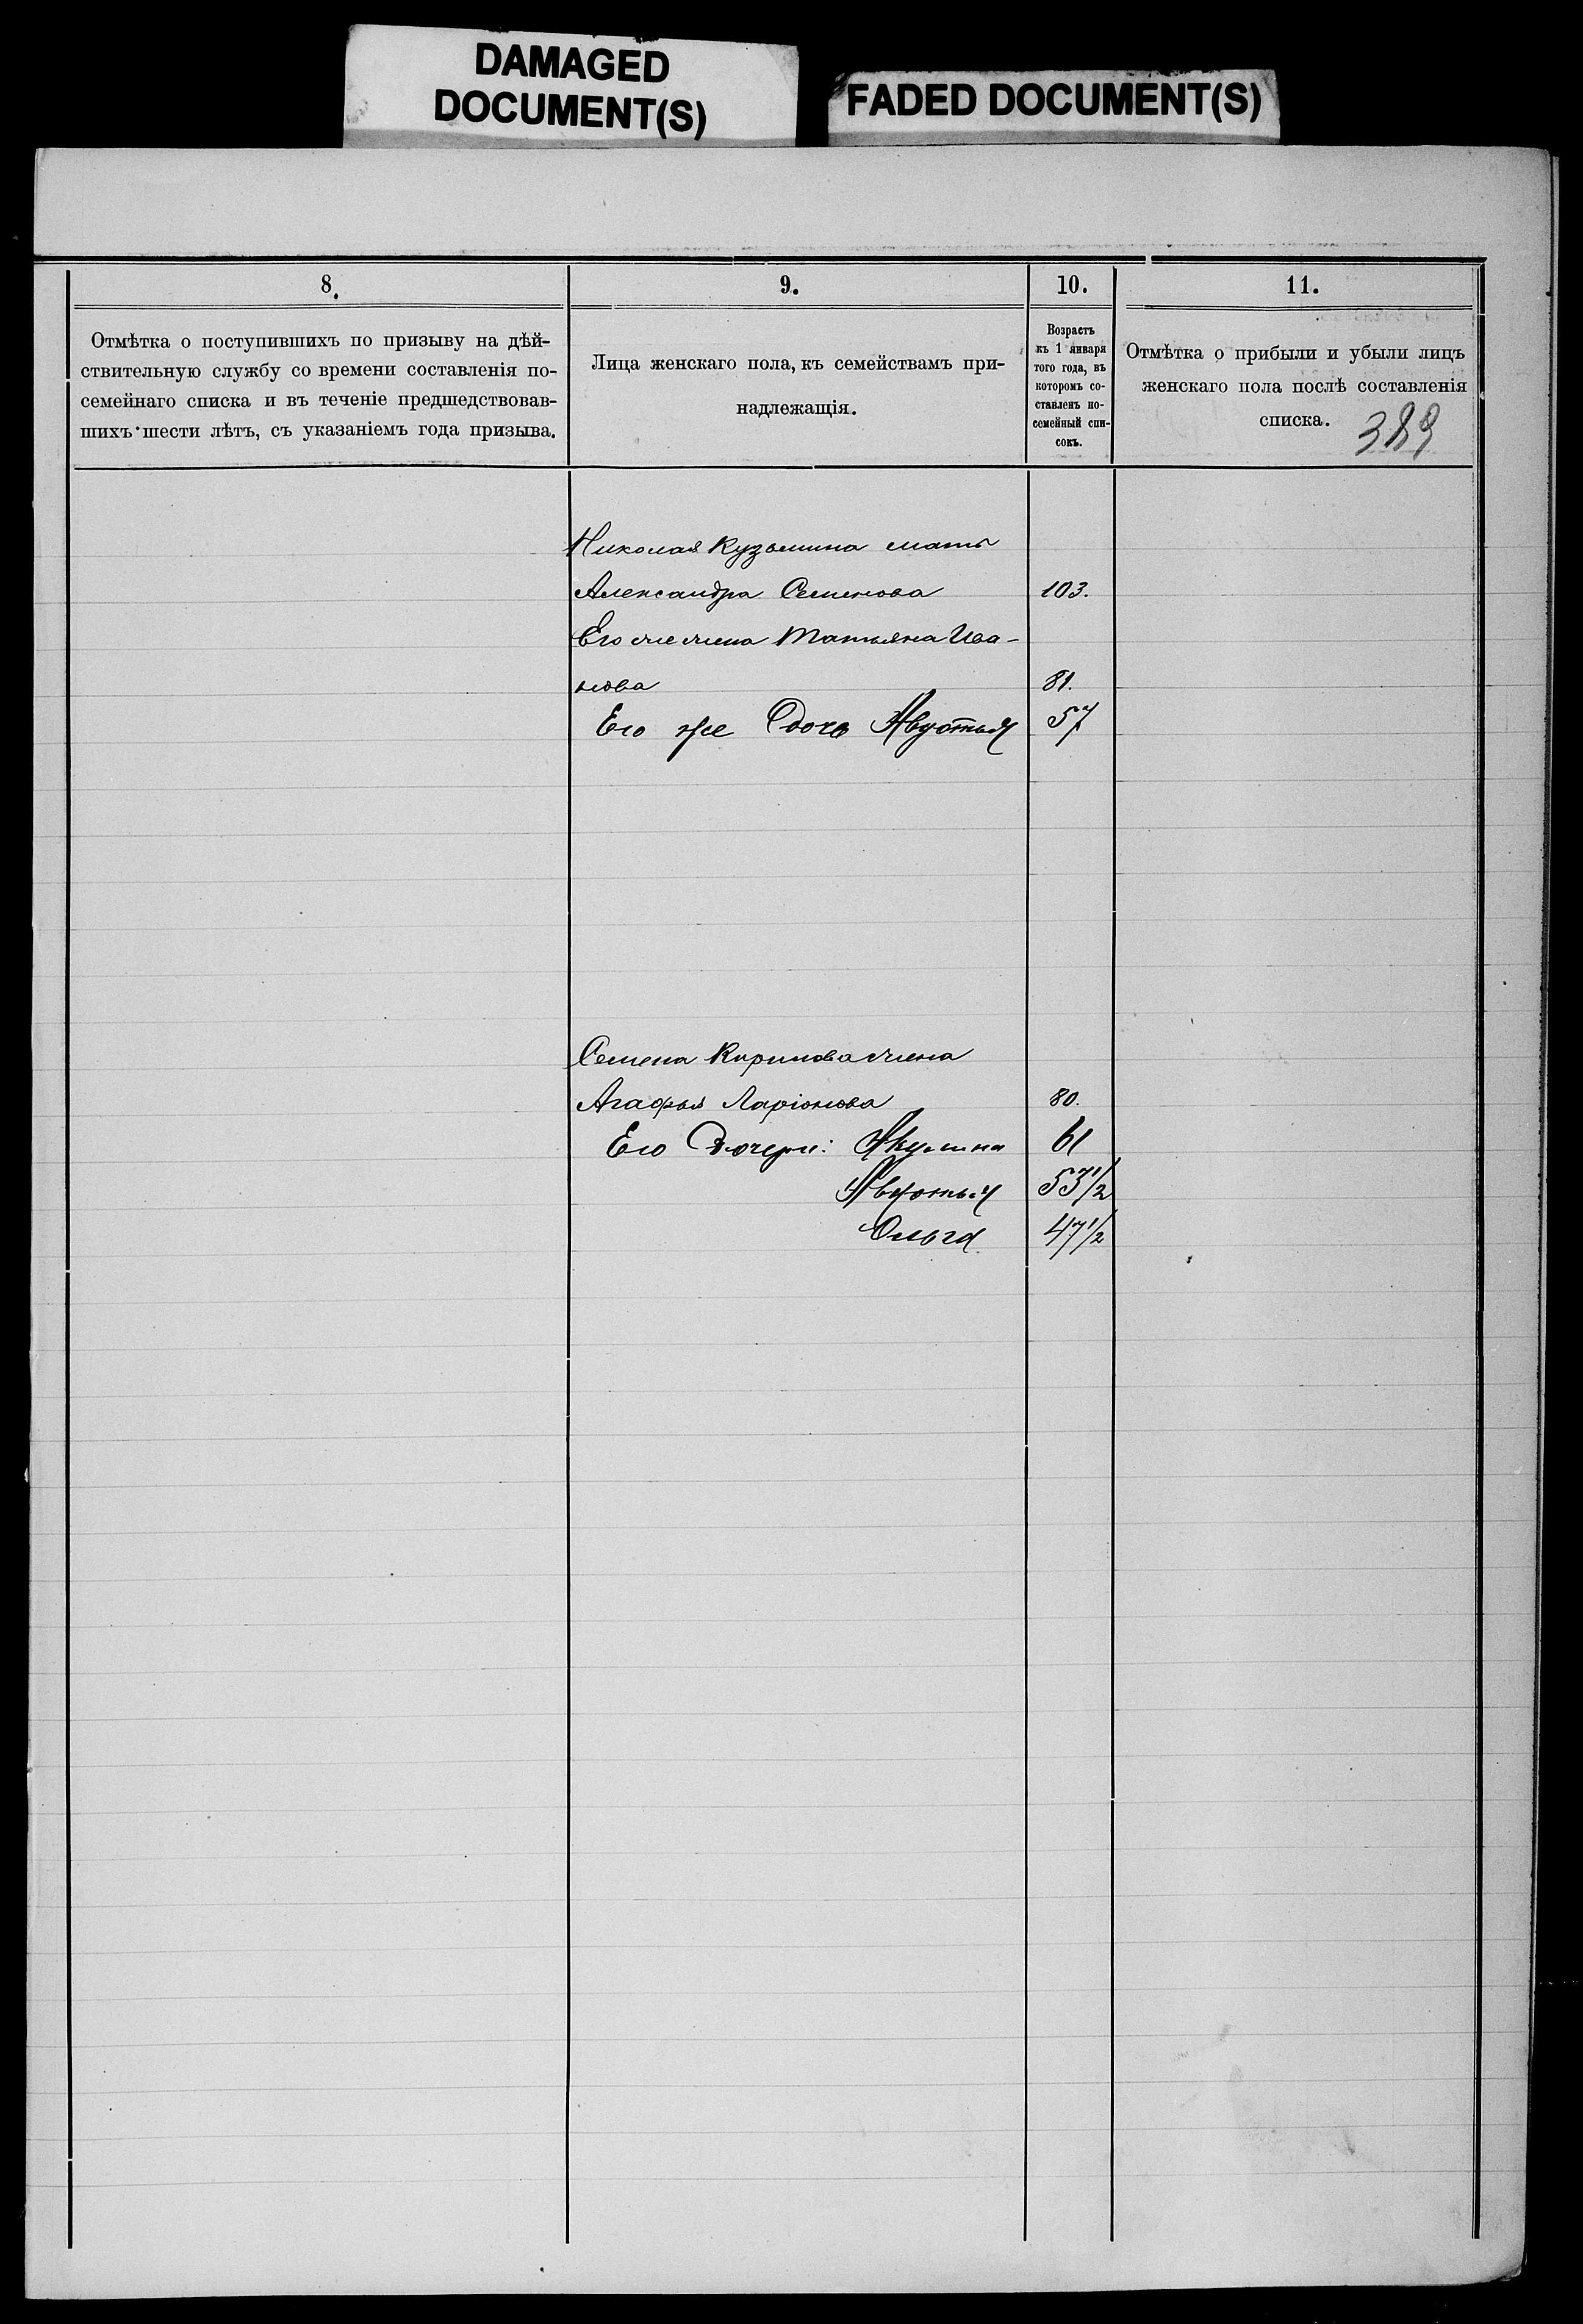 DAMAGED
DOCUMENT(S)
FADED DOCUMENT(S)
8.
9.
10.
11.
Отмѣтка о поступившихъ по призыву на дѣй-
ствительную службу со времени составленія по-
семейнаго списка и въ теченіе предшедствовав-
шихъ шести лѣтъ, съ указаніемъ года призыва.
Лица женскаго пола, къ семействамъ при-
надлежащія.
Возрастъ
къ 1 января
того года, въ
которомъ со-
ставленъ по-
семейный спи-
сокъ.
Отмѣтка о прибыли и убыли лицъ
женскаго пола послѣ составленія
списка.
389
Николая Кузьмина мать
Александра Семенова 103.
Его же жена Татьяна Ива-
нова 81.
Его же дочь Авдотья 57
Семена Кирилова жена
Агафья Ларіонова 80.
Его дочери: Акулина 61
Авдотья 53 1/2
Ольга 47 1/2